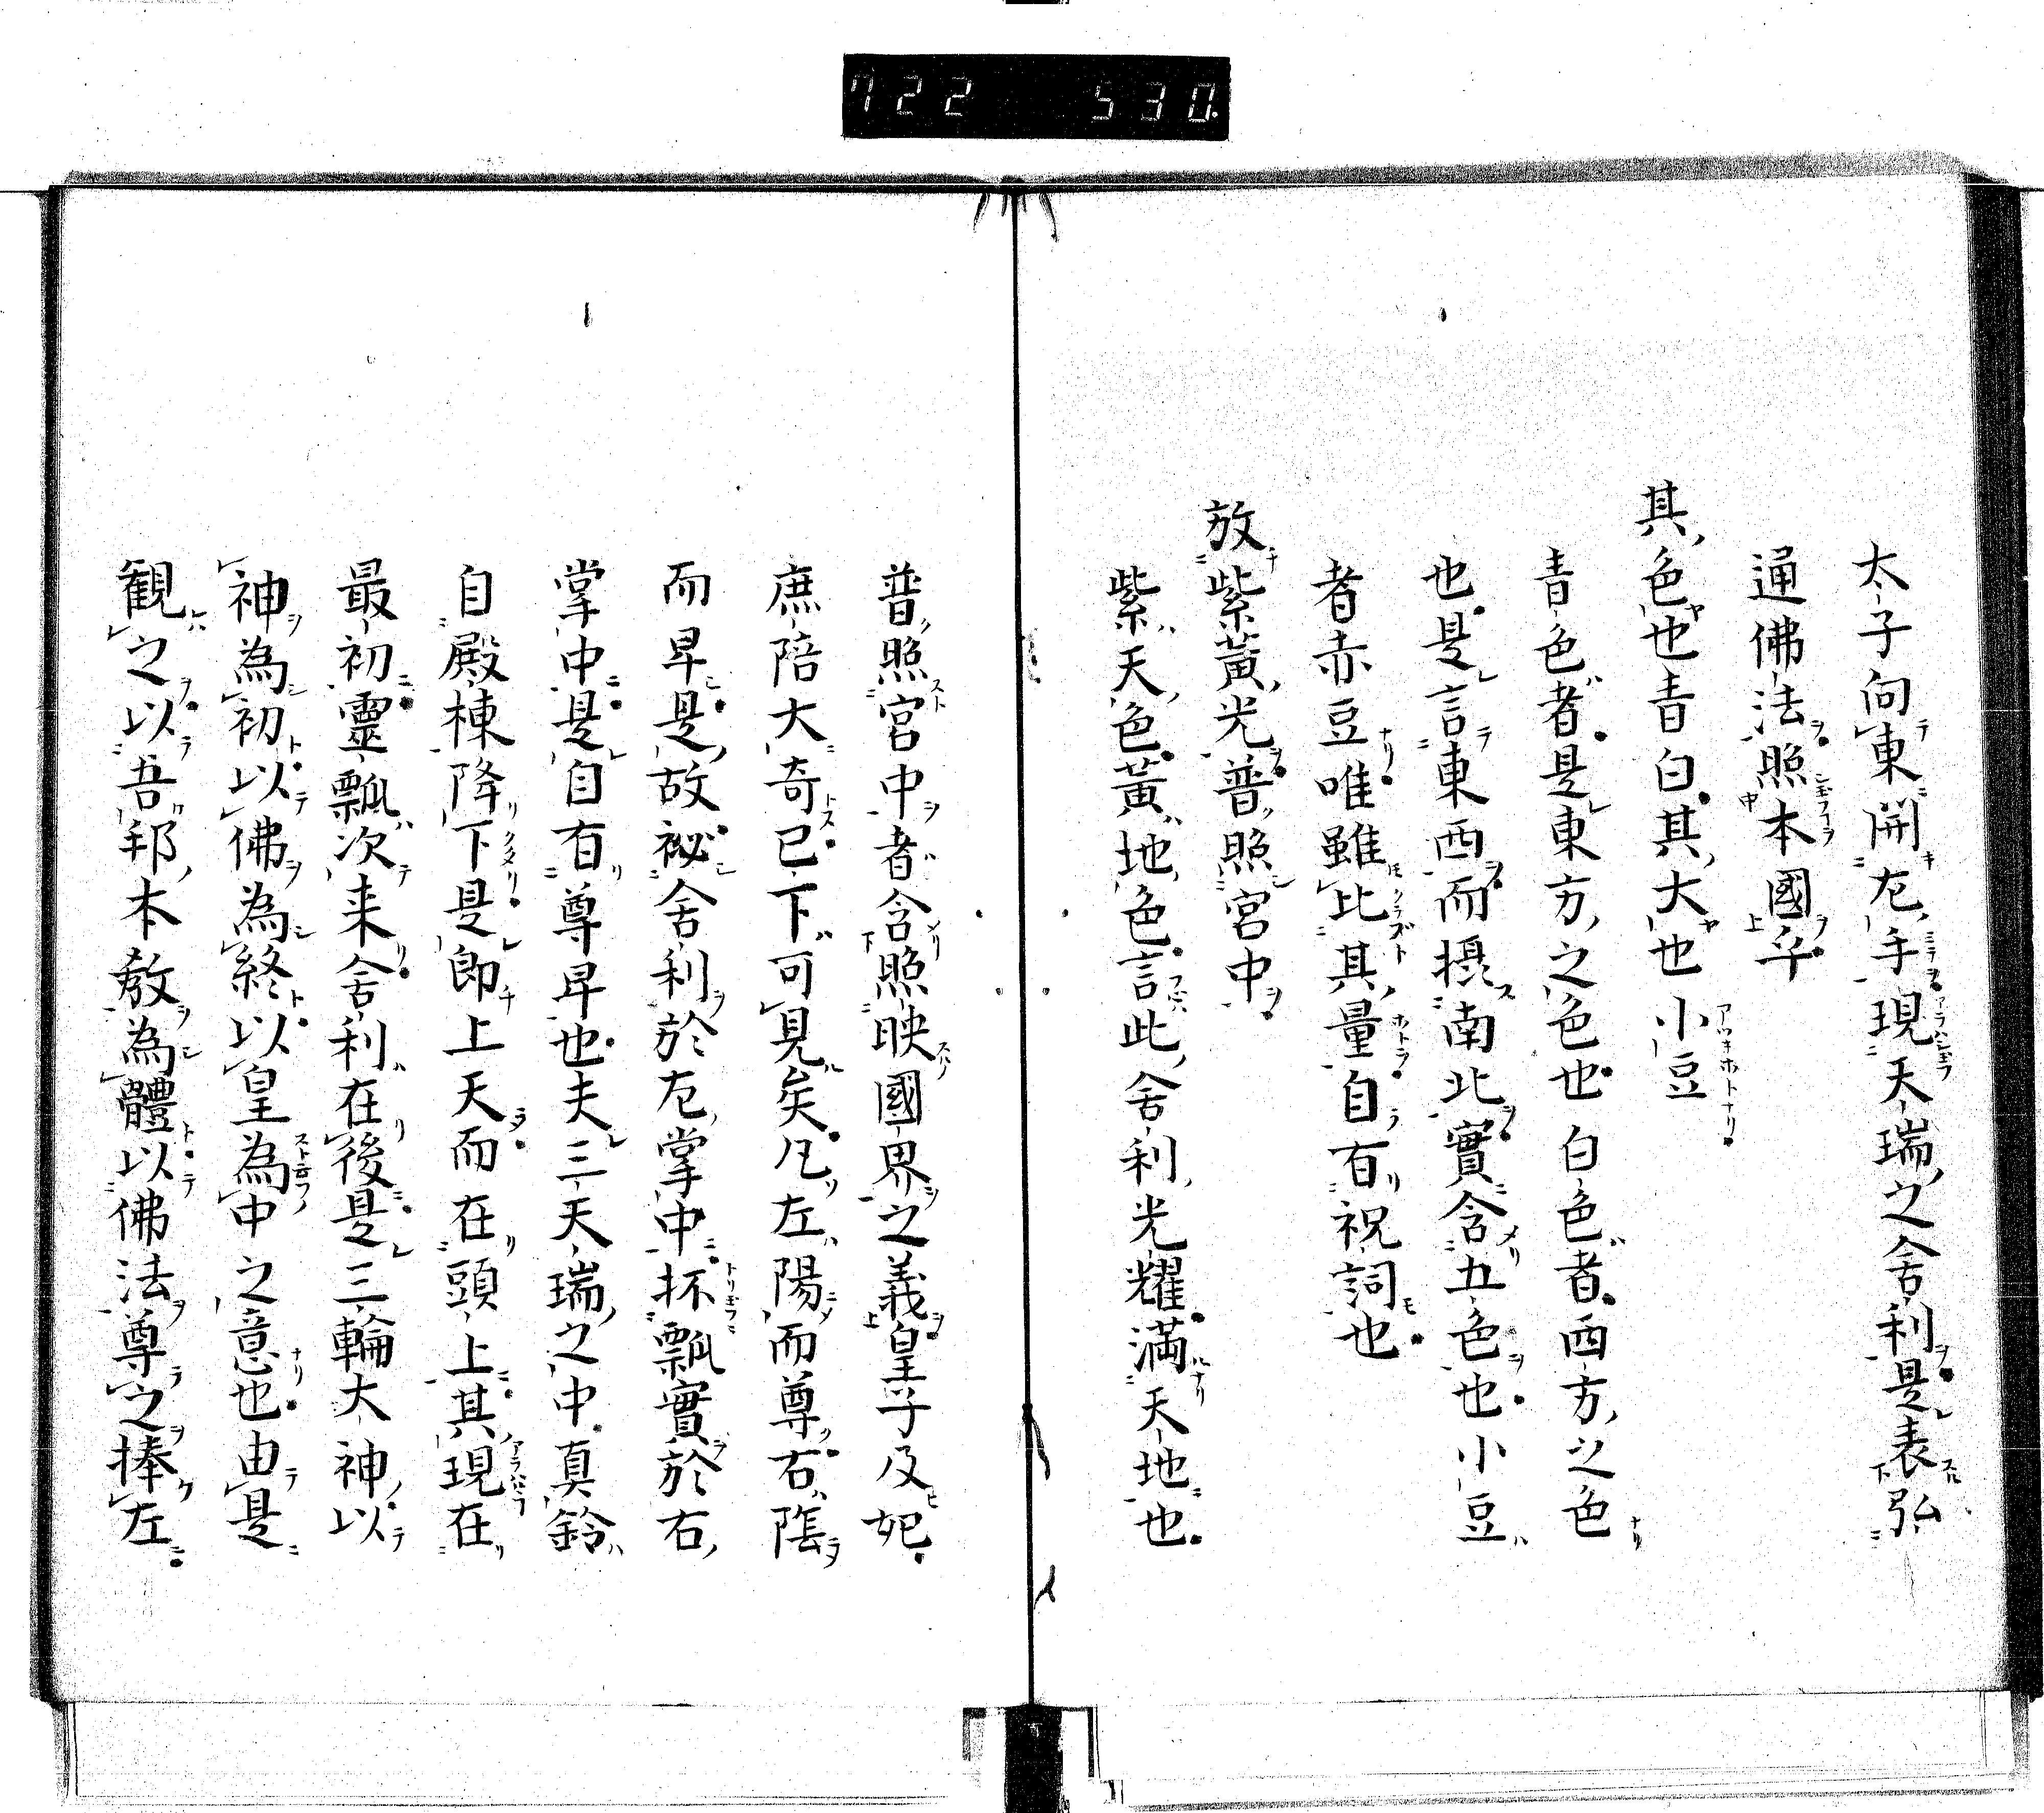 722 530
太子向東開左手現天瑞之舍利是表弘
通佛法照本國乎
其色也青白其大也小豆
青色者是東方之色也白色者西方之色
也是言東西而摂南北實含五色也小豆
者赤豆唯雖比其量自有祝詞也
放紫黃光普照宮中
紫天色黃地色言此舍利光耀滿天地也
普照宮中者含照映國界之義皇子及妃
庶陪大奇已下可見矣凡左陽而尊右陰
而卑是故祕舍利於左掌中抔瓢實於右
掌中是自有尊卑也夫三天瑞之中真鈴
自殿棟降下是即上天而在頭上其現在
最初靈瓢次来舍利在後是三輪大神以
神為初以佛為終以皇為中之意也由是
観之以吾邦本教為體以佛法尊之捧左